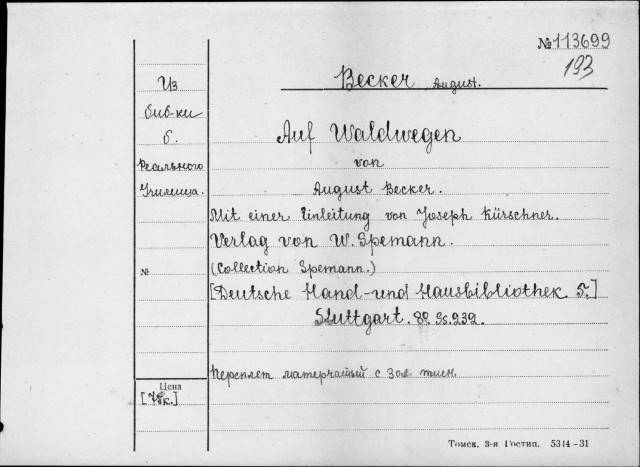 №113699
193
Becker August.
Из
биб-ки
б.
Реального
Училища.
Auf Waldwegen
von
August Becker.
Mit einer Einleitung von Joseph Kürschner.
Verlag von W. Spemann.
№
(Collection Spemann.)
[Deutsche Hand-und Hausbibliothek 5.]
Stuttgart. 8º. Ss. 232.
Переплет матерчатый с зол тисн.
Цена
[75к.]
Томск. 3-я Гостип. 5314-31